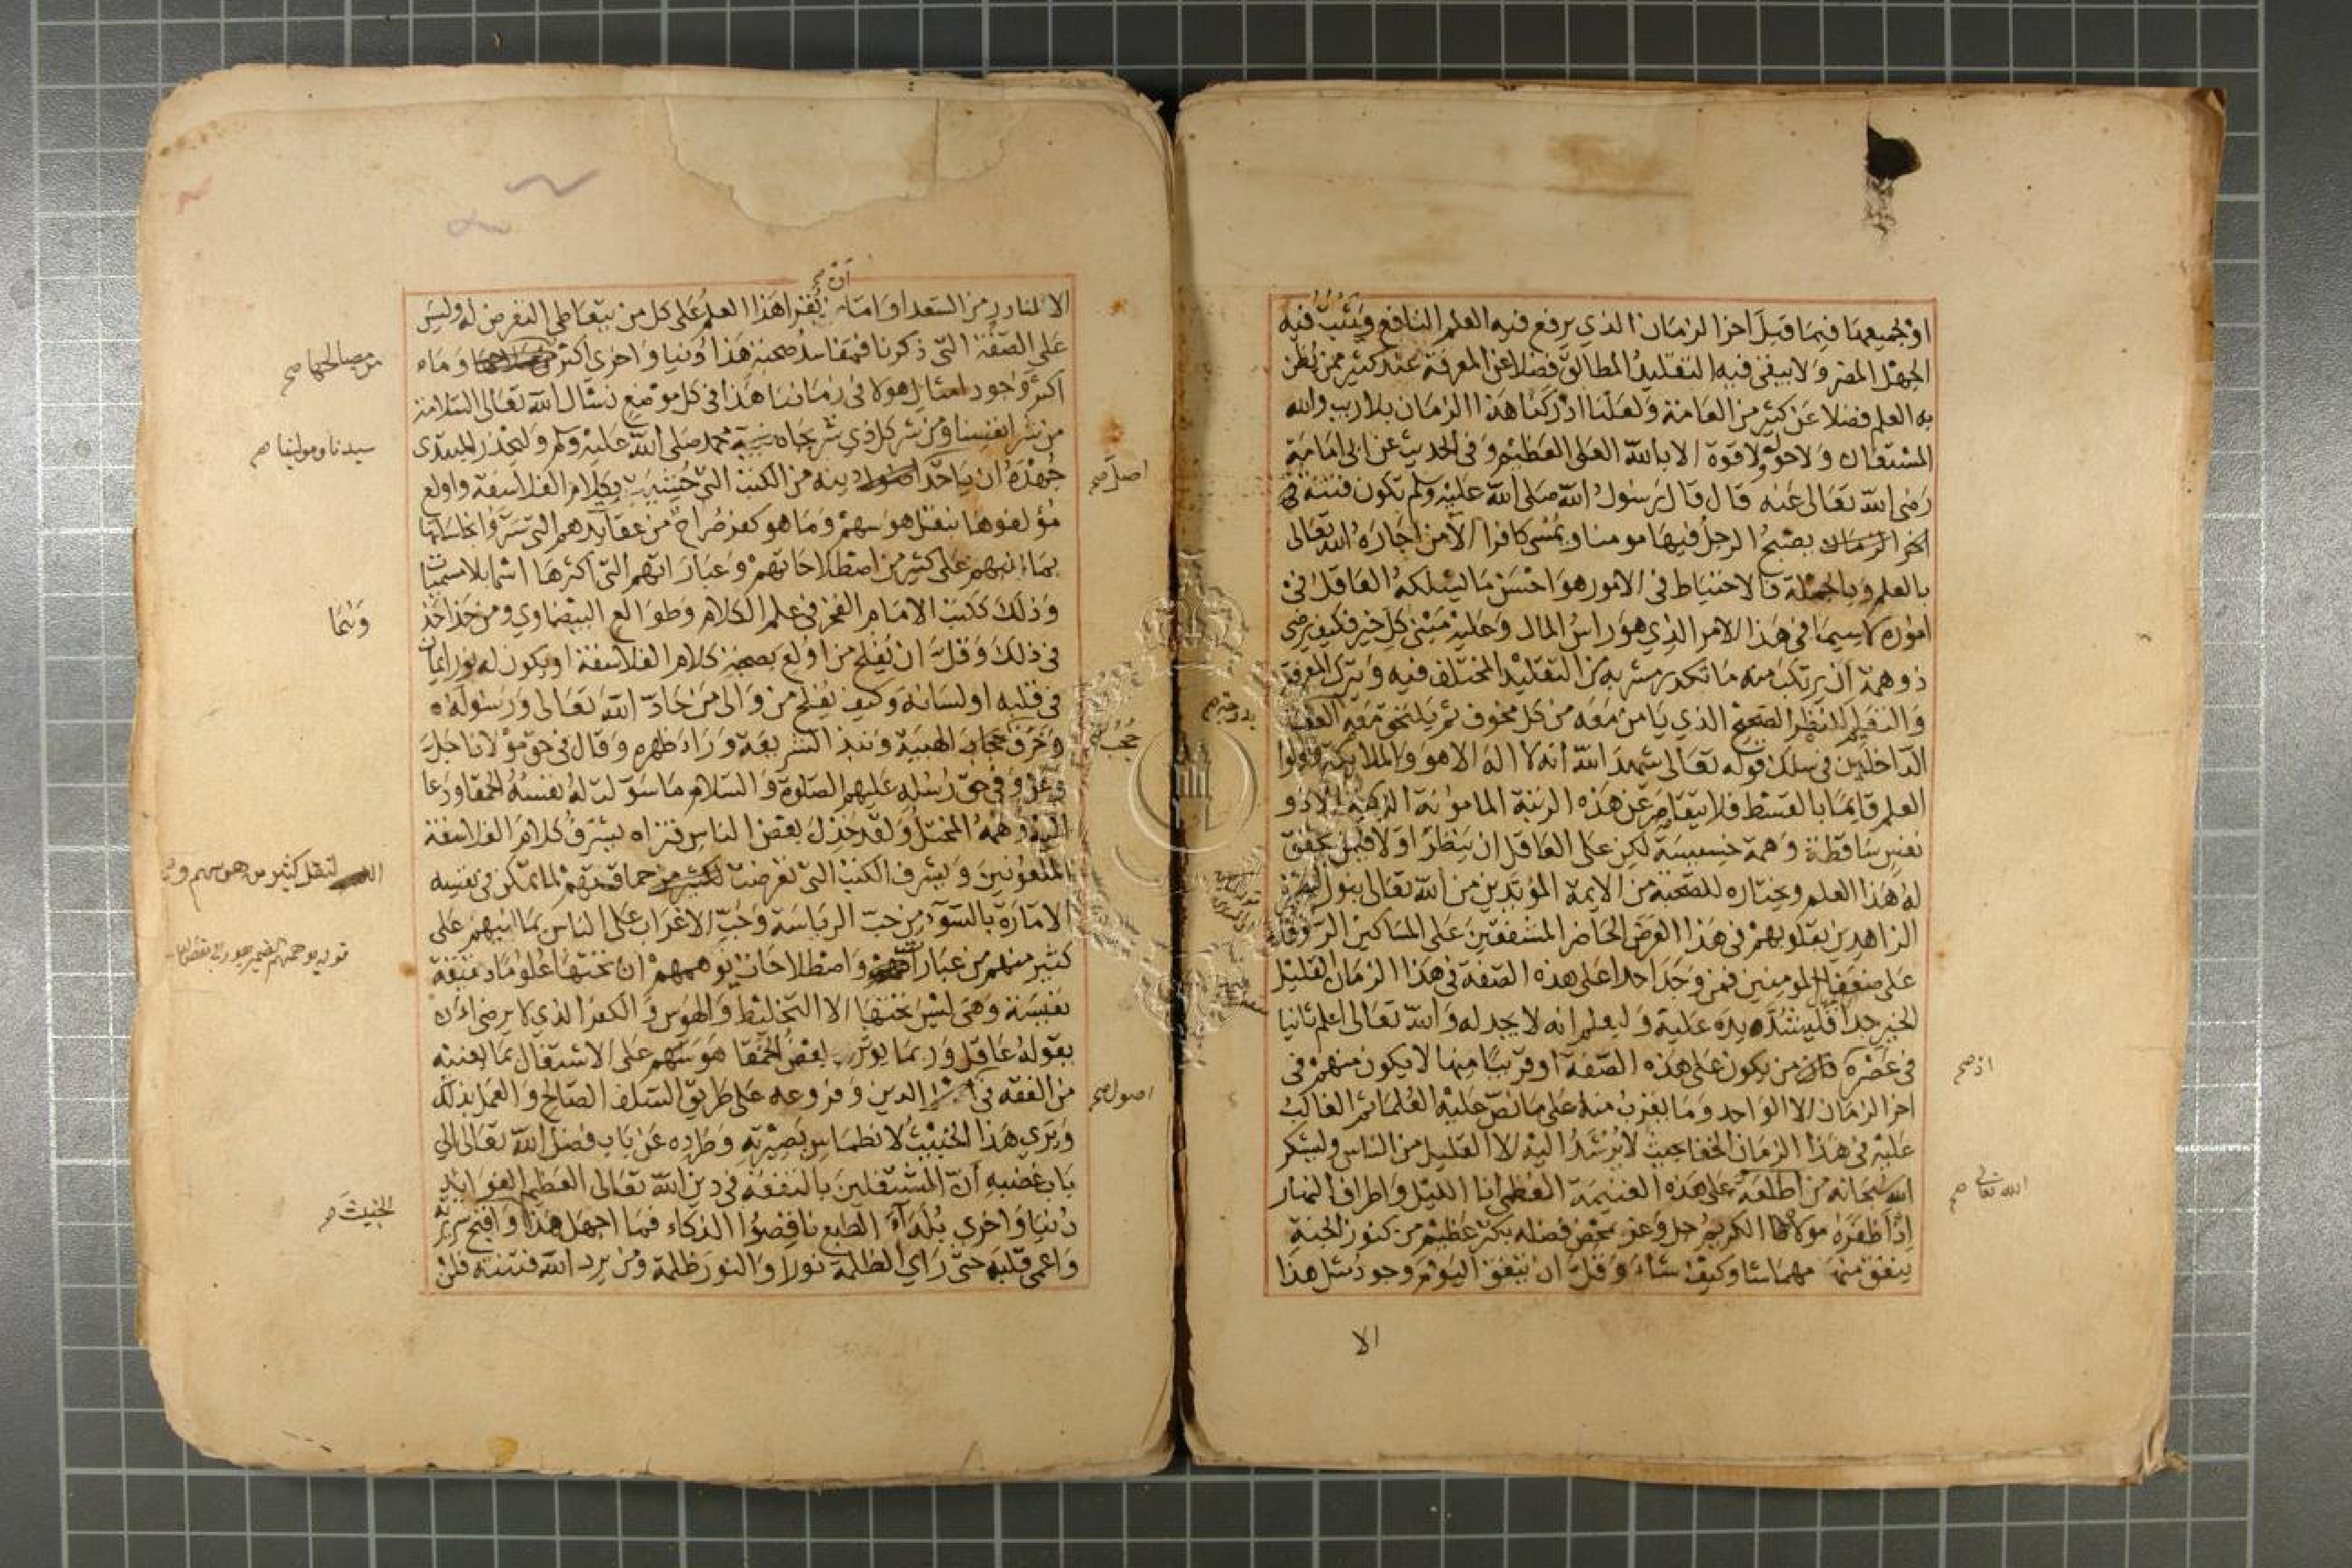 او جميعها فيما قبل اخر الزمان الذي يرفع فيه العلم النافع ويثبت فيه
الجهل المضر ولا يبقى فيه التقليد المطابق فضلا عن المعرفة عند كثير ممن يظن
به العلم فضلا عن كثير من العامة ولعلنا ادركنا هذا الزمان بلا ريب والله
المستعان ولا حول ولا قوة الا بالله العلي العظيم وفي الحديث عن ابي امامة
رضي الله تعالى عنه قال قال رسول الله صلى الله عليه وسلم تكون فتنة في
اخر الزمان يصبح الرجل فيها مومنا ويمسي كافرا الا من اجاره الله تعالى
بالعلم وبالجملة فالاحتياط في الامور هو احسن ما يسلكه العاقل في
اموره لا سيما في هذا الامر الذي هو راس المال وعليه مبنى كل خير فكيف يرضى
ذو همة ان يرتكب منه ما تكدر مشربه من التقليد المختلف فيه ويترك المعرفة
والتعليم للنظر الصحيح الذي يامن معه من كل مخوف ثم يلتحق معه
الداخلين في سلك قوله تعالى شهد الله انه لا اله الا هو والملائكة واولوا
العلم قائما بالقسط فلا يتقاصر عن هذه الرتبة المامونة الزكية الا ذو
نفس ساقطة وهمة خسيسة لكن على العاقل ان ينظر اولا فيمن يحقق
له هذا العلم ويختاره للصحبة من الايمة المؤيدين من الله تعالى بنور البصيرة
الزاهدين بقلوبهم في هذا العرض الحاضر المشفقين على المساكين الروفا
على ضعفا المومنين فمن وجد احدا على هذه الصفة في هذا الزمان القليل
الخير جدا فليشد يده عليه وليعلم انه لا يجد له والله تعالى اعلم ثانيا
في عصره من يكون على هذه الصفة او قريبا منها لا يكون منهم في
اذ صح
اخر الزمان الا الواحد وما يقرب منه على ما نص عليه العلما ثم الغالب
عليه في هذا الزمان الخفا بحيث لا يرشد اليه الا القليل من الناس وليشكر
الله سبحانه من اطلعه على هذه الغنيمة العظمى انا الليل واطراف النهار
الله تعالى صح
اذ اظفره مولاه الكريم جل وعز بمحض فضله بكنز عظيم من كنوز الجنة
ينفق منه مهما شا وكيف شاء وقل ان يتفق اليوم وجود مثل هذا
الا
ان صح
الا لنادر من السعدا واما يقرا هذا العلم على كل من يتعاطى التعرض له وليس
على الصفة التي ذكرنا فمفاسد صحبة هذا دنيا واخرى اكثر وما
من مصالحها صح
اكثر وجود امثال هولا في زماننا هذا في كل موضع نسال الله تعالى السلامة
من شر انفسنا ومن شر كل ذي شر بجاه نبيه محمد صلى الله عليه وسلم وليحذر المبتدي
سيدنا ومولينا صح
جهده ان ياخذ اصول دينه من الكتب التي حشيت بكلام الفلاسفة واولع
اصل صح
مؤلفوها بنقل هوسهم وما هو كفر صراح من عقايدهم التي ستروا نجاستها
بما انبهم على كثير من اصطلاحاتهم وعباراتهم التي اكثرها اسما بلا مسميات
وذلك ككتب الامام الفخر في علم الكلام وطوالع البيضاوي ومن حذا حذوهما
في ذلك وقل ان يفلح من اولع بصحبة كلام الفلاسفة او يكون له نور ايمان
في قلبه او لسانه وكيف يفلح من والى من حاد الله تعالى ورسوله
وخرق حجاب الهيبة ونبذ الشريعة وراء ظهره وقال في حق مولانا جل
حجب
وعز وفي حق رسله عليهم الصلوة والسلام ما سولت له نفسه الحمقا ودعا
اليه وهمه المختل ولقد خذل بعض الناس فتراه يشرف كلام الفلاسفة
الملعونين ويشرف الكتب التي تعرضت حماقتهم لما تمكن في نفسه
لنقل كثير من هوسهم
الامارة بالسوء من حب الرياسة وحب الاغراب على الناس بما انبهم على
كثير منهم من عبارات واصطلاحات توهمهم ان تحتها علوما دقيقة
نفيسة وهي ليس تحتها الا التخليط والهوس والكفر الذي لا يرضى ان
يقوله عاقل وربما يوثر بعض الحمقا هوسهم على الاشتغال بما يعنيه
من الفقه في اصول الدين وفروعه على طريق السلف الصالح والعمل بذلك
اصول صح
ويرى هذا الخبيث لانطماس بصيرته وطرده عن باب فضل الله تعالى الى
باب غضبه ان المشتغلين بالتفقه في دين الله تعالى العظيم الفوايد
دنيا واخرى بلداء الطبع ناقصوا الذكاء فما اجهل هذا واقبح سريرته
الخبيث صح
واعمى قلبه حتى راى الظلمة نورا والنور ظلمة ومن يرد الله فتنته فلن